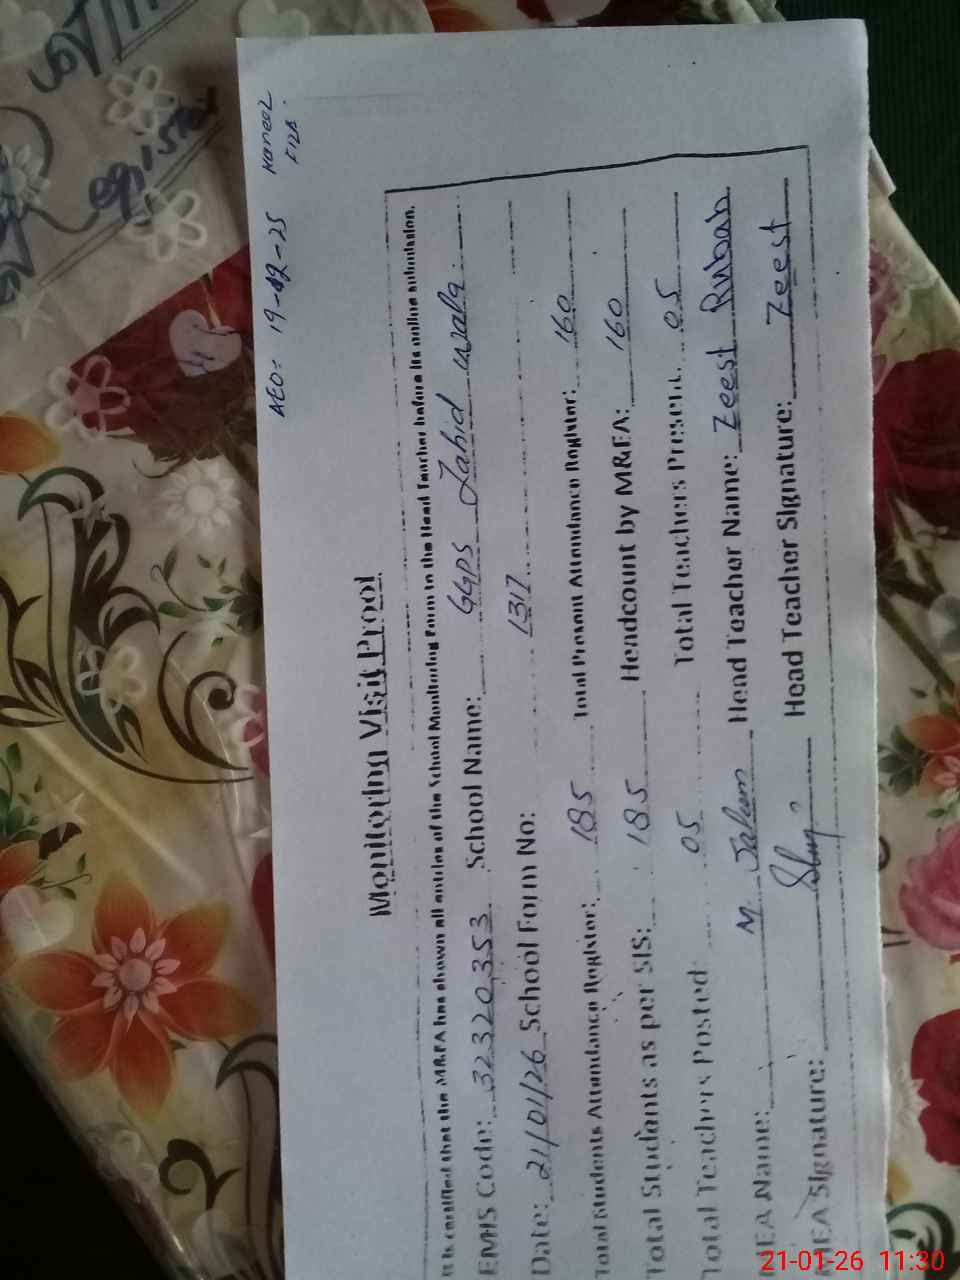 AEO: 19-12-25
Monitoring Visit Proof
It is certified that the MREA has shown all entries of the School Monitoring Form to the Head Teacher before its online submission.
EMIS Code: 32320353 School Name: GGPS Zahid wala
Date: 21/01/26 School Form No: 1317
Total Students Attendance Register: 185 Total Present Attendance Register: 160
Total Students as per SIS: 185 Headcount by MREA: 160
Total Teachers Posted: 05 Total Teachers Present: 05
MEA Name: M. Saleem Head Teacher Name: Zeest Rubab
MEA Signature: Head Teacher Signature: Zeest
21-01-26 11:30